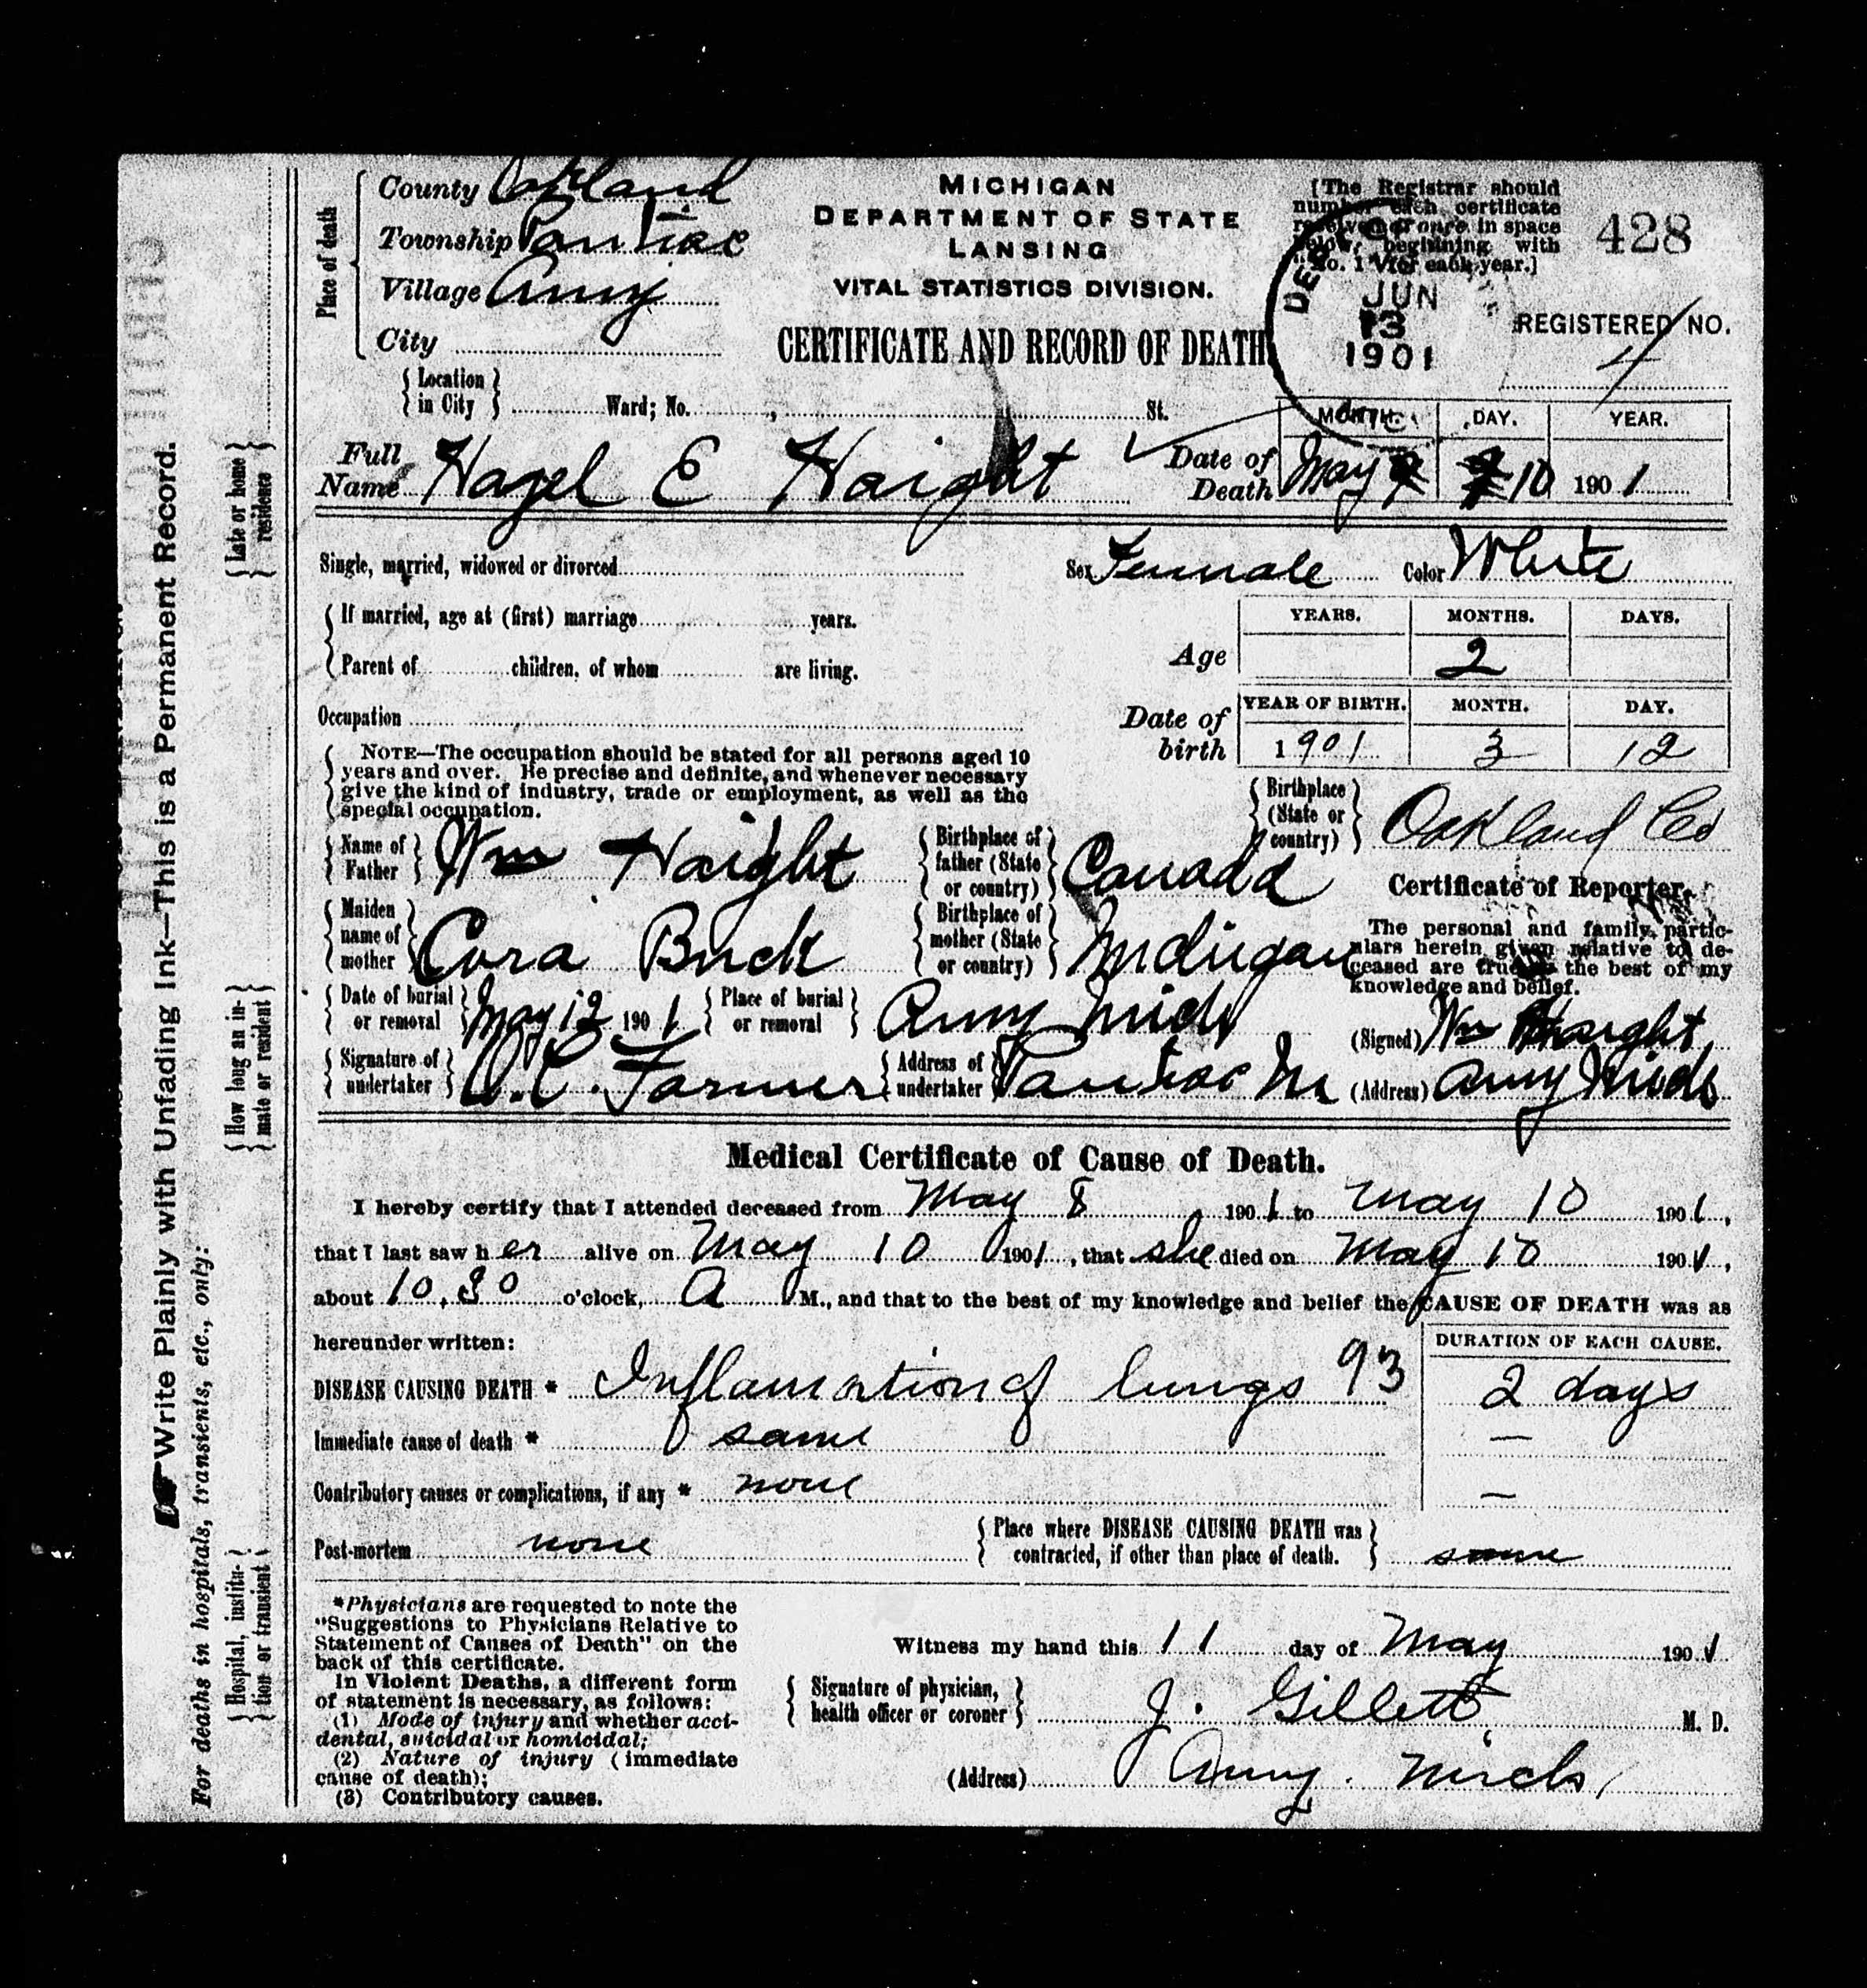 County Oakland
Township Pontiac
Village Amy
City
Place of death
MICHIGAN
DEPARTMENT OF STATE
LANSING
VITAL STATISTICS DIVISION.
CERTIFICATE AND RECORD OF DEATH
[The Registrar should
number each certificate
once in space
below, beginning with
"No. 1" for each year.]
428
JUN
13
1901
REGISTERED NO.
4
Location in City Ward; No. , St.
Full Name Hazel E Haight
Date of Death
MONTH. DAY. YEAR.
May 10 1901
Single, married, widowed or divorced
Sex Female Color White
If married, age at (first) marriage years.
Parent of children, of whom are living.
Age
YEARS. MONTHS. DAYS.
2
Occupation
Date of birth
YEAR OF BIRTH. MONTH. DAY.
1901 3 12
NOTE—The occupation should be stated for all persons aged 10
years and over. Be precise and definite, and whenever necessary
give the kind of industry, trade or employment, as well as the
special occupation.
Birthplace (State or country) Oakland Co
Name of Father Wm Haight
Birthplace of father (State or country) Canada
Maiden name of mother Cora Buck
Birthplace of mother (State or country) Michigan
Certificate of Reporter.
The personal and family partic-
ulars herein given relative to de-
ceased are true to the best of my
knowledge and belief.
Date of burial or removal May 12 1901
Place of burial or removal Amy Mich
(Signed) Wm Haight
Signature of undertaker Farmer
Address of undertaker Pontiac M
(Address) Amy Mich
Medical Certificate of Cause of Death.
I hereby certify that I attended deceased from May 8 1901 to May 10 1901,
that I last saw her alive on May 10 1901, that she died on May 10 1901,
about 10.30 o'clock, A M., and that to the best of my knowledge and belief the CAUSE OF DEATH was as
hereunder written:
DURATION OF EACH CAUSE.
DISEASE CAUSING DEATH * Inflamation of lungs 93 2 days
Immediate cause of death * same —
Contributory causes or complications, if any * none —
Post-mortem none
Place where DISEASE CAUSING DEATH was contracted, if other than place of death. same
*Physicians are requested to note the
"Suggestions to Physicians Relative to
Statement of Causes of Death" on the
back of this certificate.
In Violent Deaths, a different form
of statement is necessary, as follows:
(1) Mode of injury and whether acci-
dental, suicidal or homicidal;
(2) Nature of injury (immediate
cause of death);
(3) Contributory causes.
Witness my hand this 11 day of May 1901
Signature of physician, health officer or coroner J. Gillett M. D.
(Address) Amy. Mich
Write Plainly with Unfading Ink—This is a Permanent Record.
For deaths in hospitals, transients, etc., only:
Late or home residence
How long an inmate or resident
Hospital, institution or transient